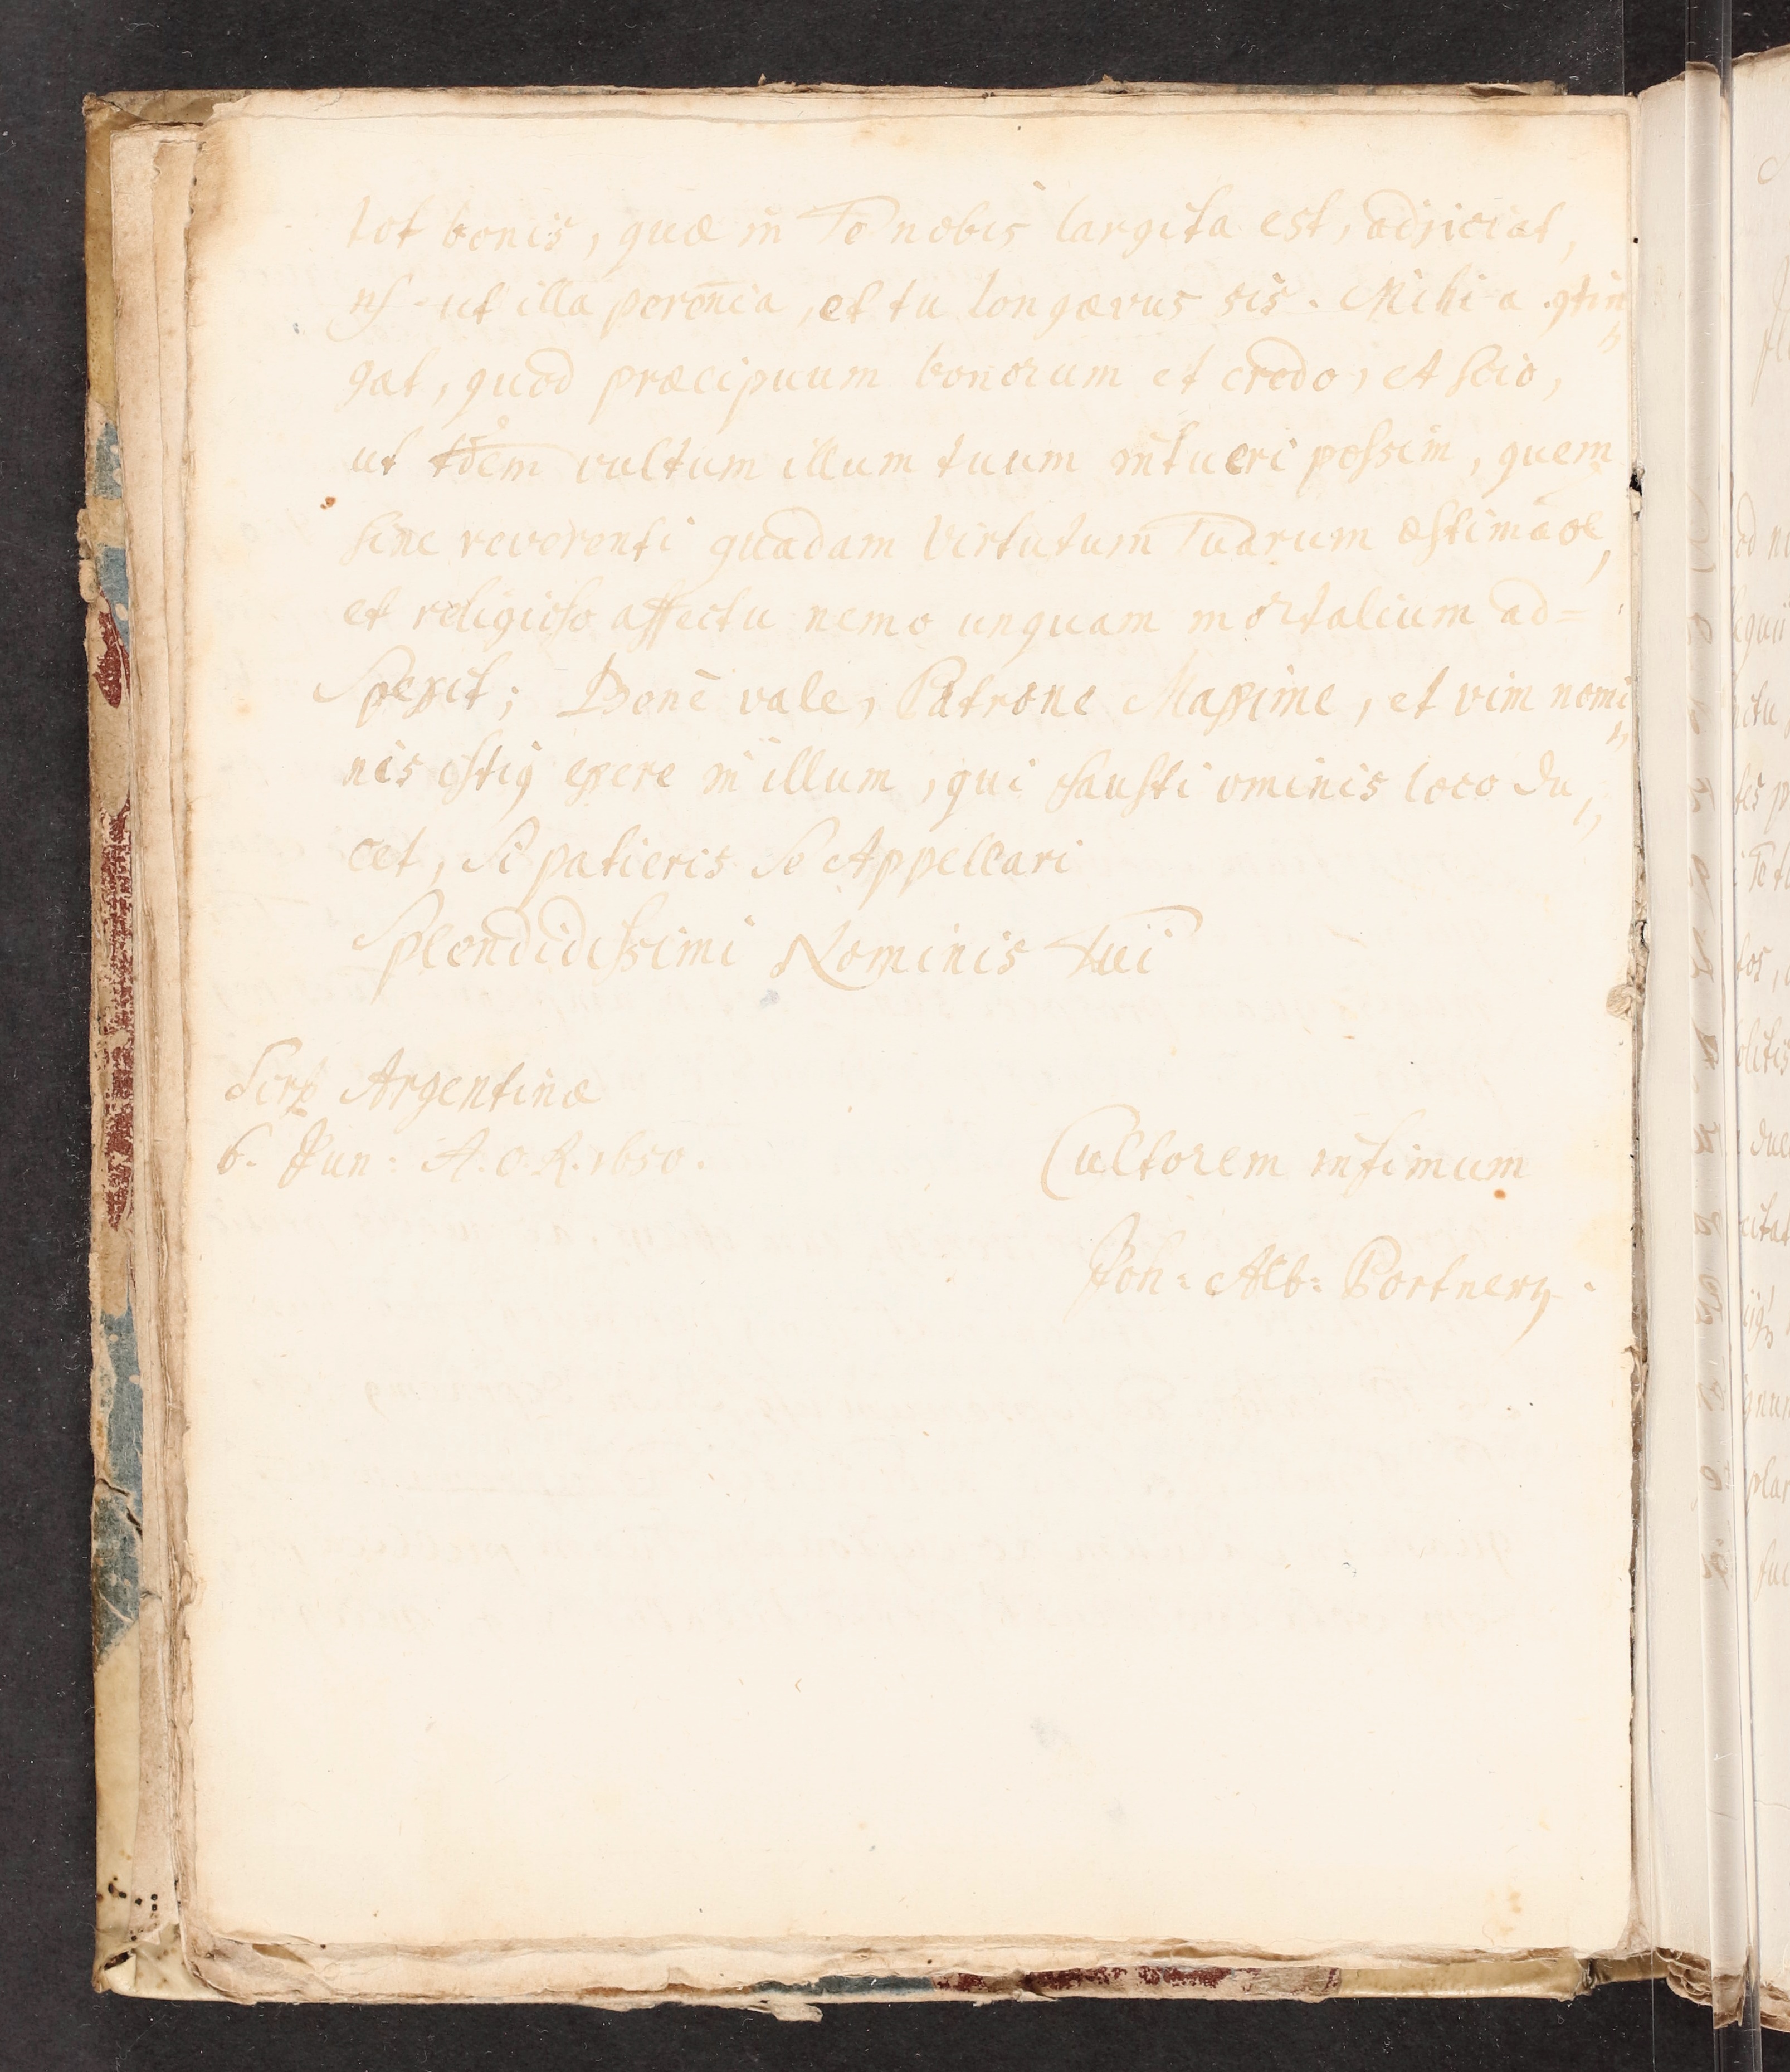 tot bonis, quæ in Te nobis largita est, adjiciat,
ut illa perēnia, et tu longævus sis. Mihi a ꝯtin„
gat, quod præcipuum bonorum et credo, et scio,
ut vultum illum tuum intueri possim, quem
sine reverenti quadam Virtutum Tuarum æstimāoē,
et religioso affectu nemo unquam mortalium ad=
spexit; Benè vale, Patrone Maxime, et vim nomi„
nis istiꝰ exere in illum, qui fausti ominis loco du„
cet, si patieris se Appellari
Splendidissimi Nominis Tui
Argentinæ
6. Jun: A. O. R. 1650.
Cultorem infimum
Joh: Alb: Portnerꝰ.